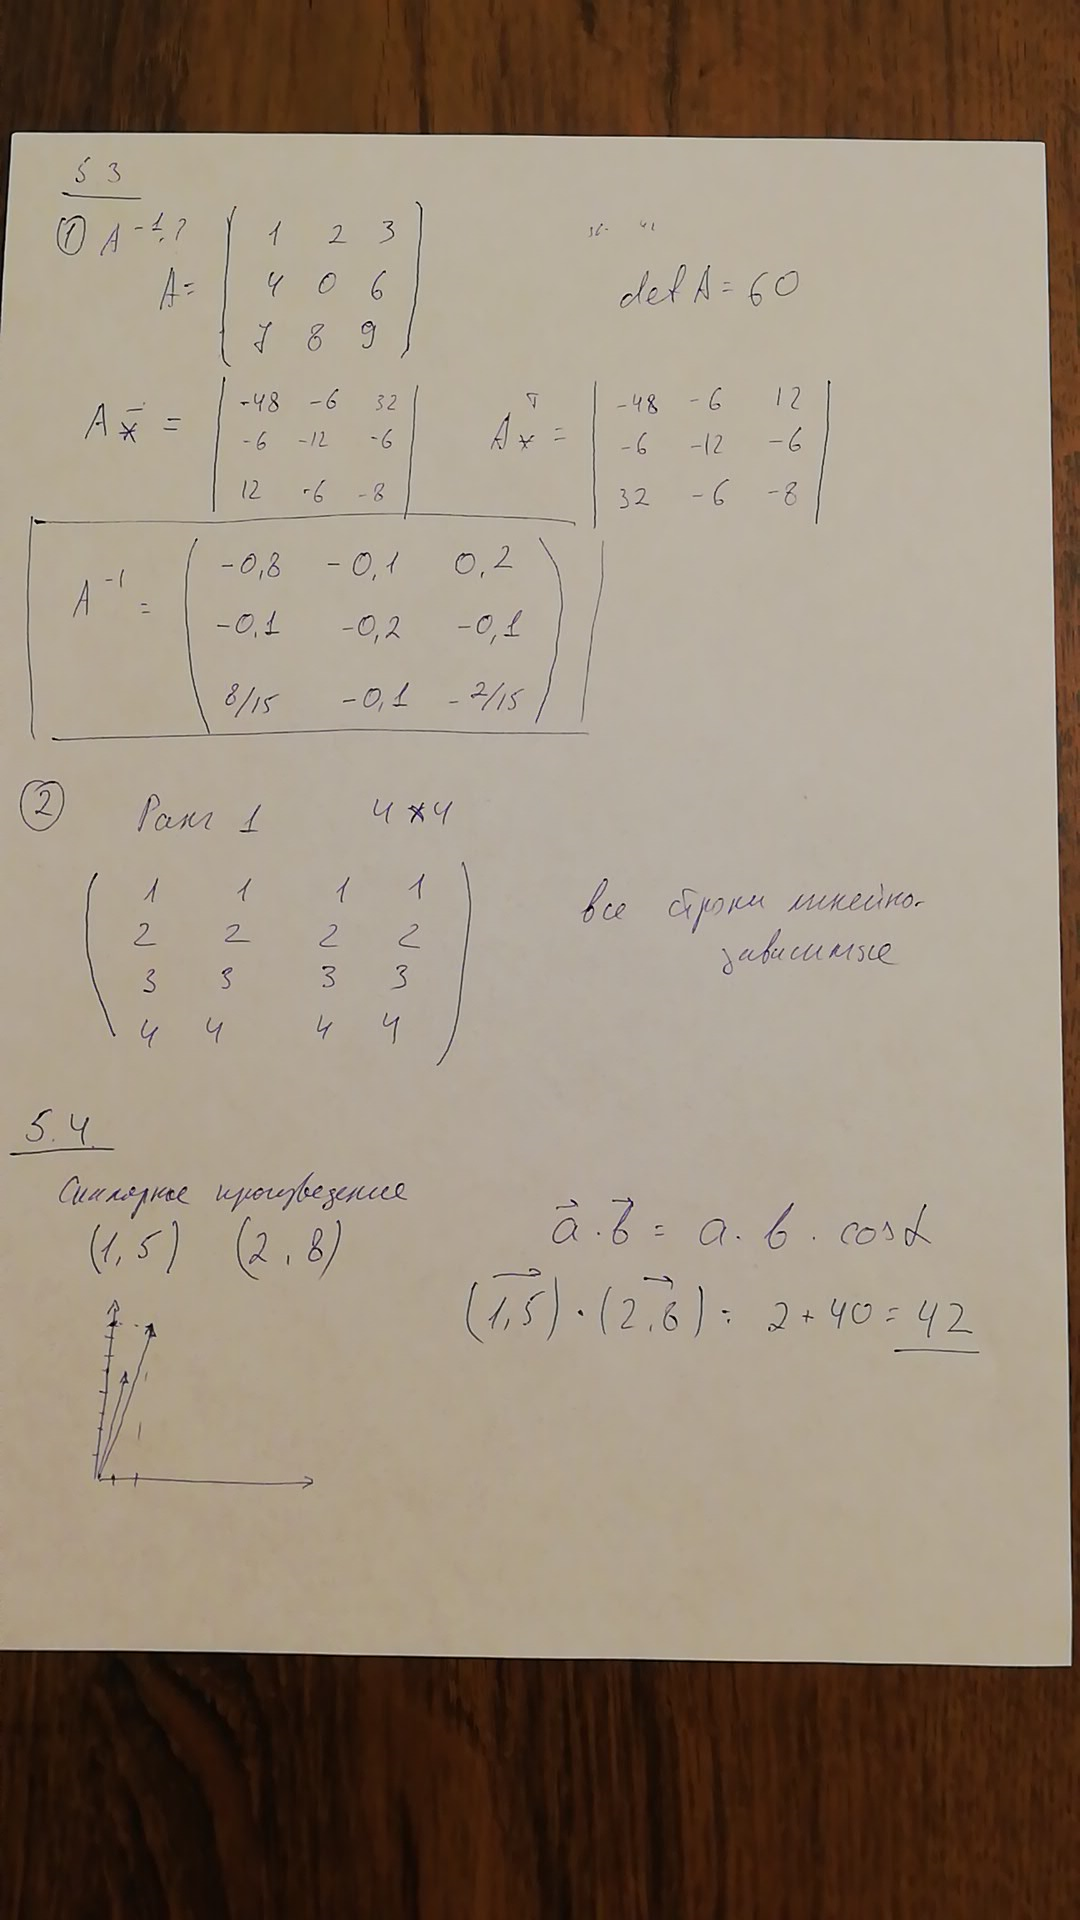 5 3
① A⁻¹?
A= 1 2 3
4 0 6
7 8 9
det A = 60
A* = -48 -6 32
-6 -12 -6
12 -6 -8
A*ᵀ = -48 -6 12
-6 -12 -6
32 -6 -8
A⁻¹ = -0,8 -0,1 0,2
-0,1 -0,2 -0,1
8/15 -0,1 -2/15
② Ранг 1 4*4
1 1 1 1
2 2 2 2
3 3 3 3
4 4 4 4
все строки линейно-
зависимые
5.4.
Скалярное произведение
(1,5) (2,8)
a⃗ · b⃗ = a · b · cosα
(1,5) · (2,8) = 2+40 = 42